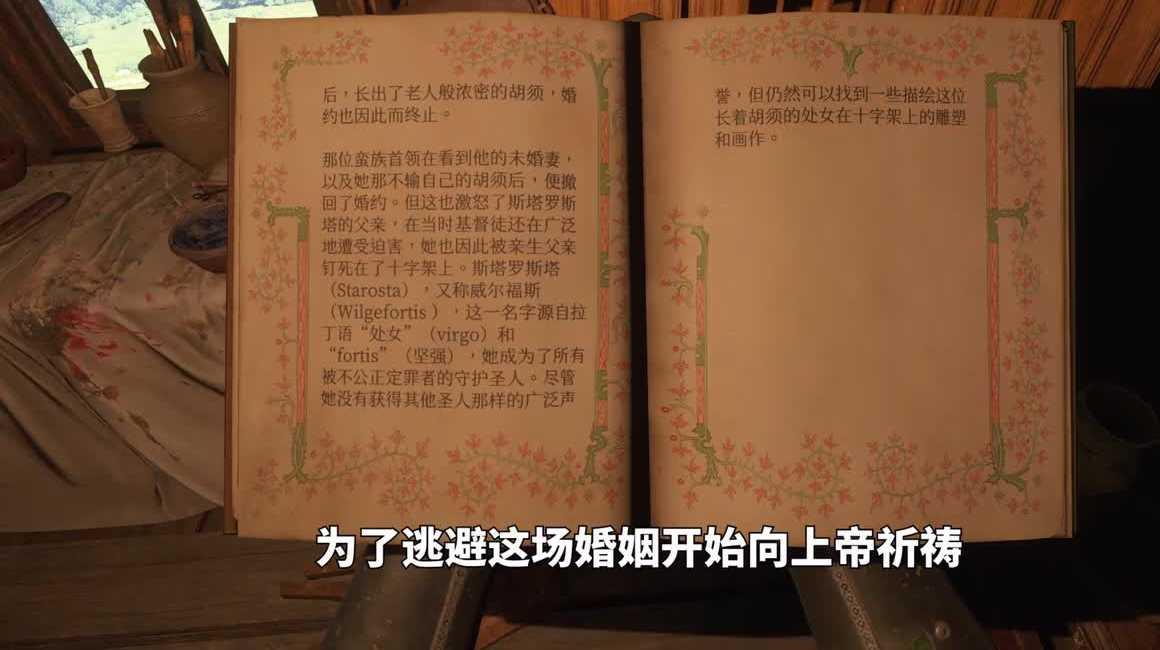 后，长出了老人般浓密的胡须，婚
约也因此而终止。
那位蛮族首领在看到他的未婚妻，
以及她那不输自己的胡须后，便撤
回了婚约。但这也激怒了斯塔罗斯
塔的父亲，在当时基督徒还在广泛
地遭受迫害，她也因此被亲生父亲
钉死在了十字架上。斯塔罗斯塔
（Starosta），又称威尔福斯
（Wilgefortis ），这一名字源自拉
丁语“处女”（virgo）和
“fortis”（坚强），她成为了所有
被不公正定罪者的守护圣人。尽管
她没有获得其他圣人那样的广泛声
誉，但仍然可以找到一些描绘这位
长着胡须的处女在十字架上的雕塑
和画作。
为了逃避这场婚姻开始向上帝祈祷